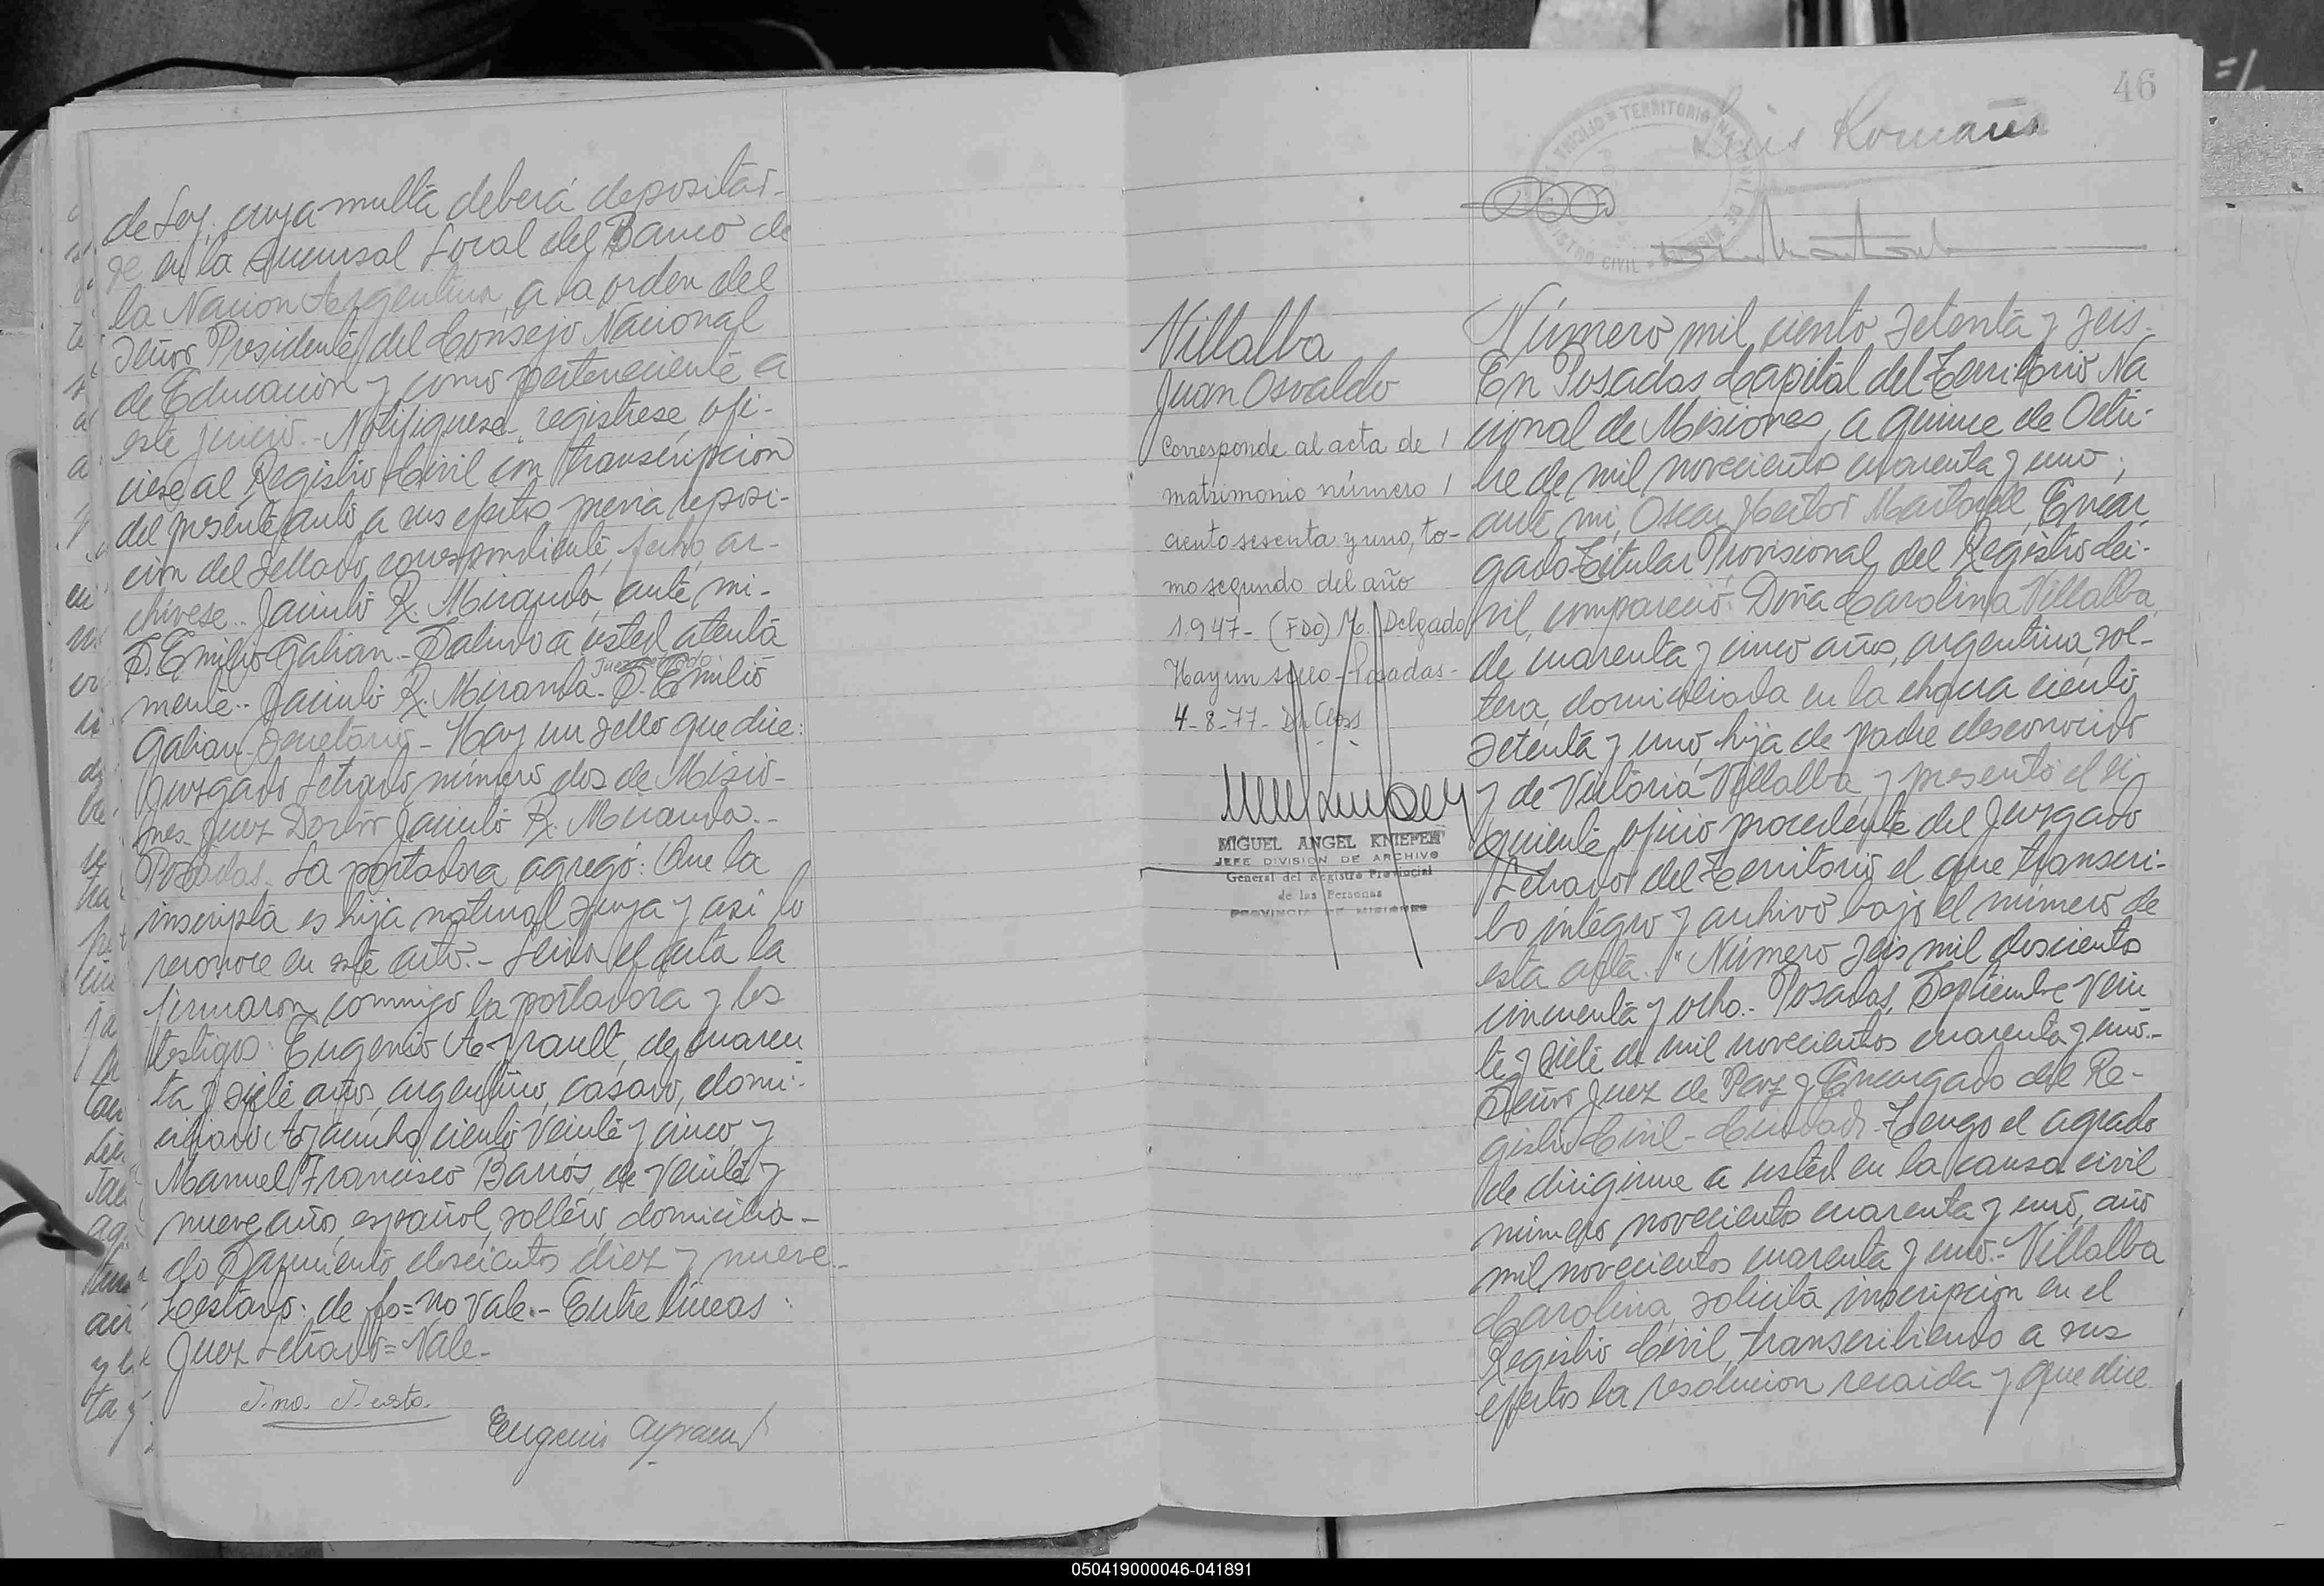 de Ley, cuya multa deberá depositar-
se en la Sucursal Local del Banco de
la Nacion Argentina, a la orden del
Señor Presidente del Consejo Nacional
de Educacion y como perteneciente a
este juicio.- Notifiquese, registrese, ofi-
ciese al Registro Civil con transcripcion
del presente auto a sus efectos previa reposi-
cion del sellado correspondiente, fecho, ar-
chivese.. Jacinto R. Miranda, ante mi-
S. Emilio Galian.- Saludo a usted atenta
mente.. Jacinto R. Miranda- Juez Letrado S. Emilio
Galian- Secretario- Hay un sello que dice:
Juzgado Letrado número dos de Misio-
nes- Juez Doctor Jacinto R. Miranda.-
Posadas. La portadora agregó: Que la
inscripta es hija natural suya y asi lo
reconoce en este acto.- Leida el acta la
firmaron conmigo la portadora y los
testigos: Eugenio Ayrault, de cuaren
ta y siete años, argentino, casado, domi-
ciliado Ayacucho ciento veinte y cinco y
Manuel Francisco Barrós, de veinte y
nueve años, español, soltero, domicilia-
do Sarmiento doscientos diez y nueve-
Testado: de fo=no vale.- Entre lineas:
Juez Letrado=Vale-
Eugenio Ayrault
46
Luis Romaña
TERRITORIO NACIONAL DE MISIONES
REGISTRO CIVIL
Villalba
Juan Osvaldo
Corresponde al acta de
matrimonio número
ciento sesenta y uno, to-
mo segundo del año
1947- (FDO) M. Delgado
Hay un sello- Posadas-
4-8-77-
MIGUEL ANGEL KNIEPER
JEFE DIVISION DE ARCHIVO
General del Registro Provincial
de las Personas
PROVINCIA DE MISIONES
Número mil ciento setenta y seis-
En Posadas Capital del Territorio Na
cional de Misiones, a quince de Octu-
bre de mil novecientos cuarenta y uno,
ante mi, Oscar Hector Martorell, Encar
gado Titular Provisional del Registro Ci-
vil, compareció: Doña Carolina Villalba,
de cuarenta y cinco años, argentina, sol-
tera, domiciliada en la chacra ciento
setenta y uno, hija de padre desconocido
y de Victoria Villalba, y presentó el si
guiente oficio procedente del Juzgado
Letrado del Territorio el que transcri-
bo integro y archivo bajo el número de
esta acta. "Número seis mil doscientos
cincuenta y ocho.- Posadas, Septiembre vein
te y siete de mil novecientos cuarenta y uno.-
Señor Juez de Paz y Encargado del Re-
gistro Civil- Ciudad.- Tengo el agrado
de dirigirme a usted en la causa civil
número novecientos cuarenta y uno, año
mil novecientos cuarenta y uno.- Villalba
Carolina, solicita inscripcion en el
Registro Civil, transcribiendo a sus
efectos la resolucion recaida y que dice
050419000046-041891